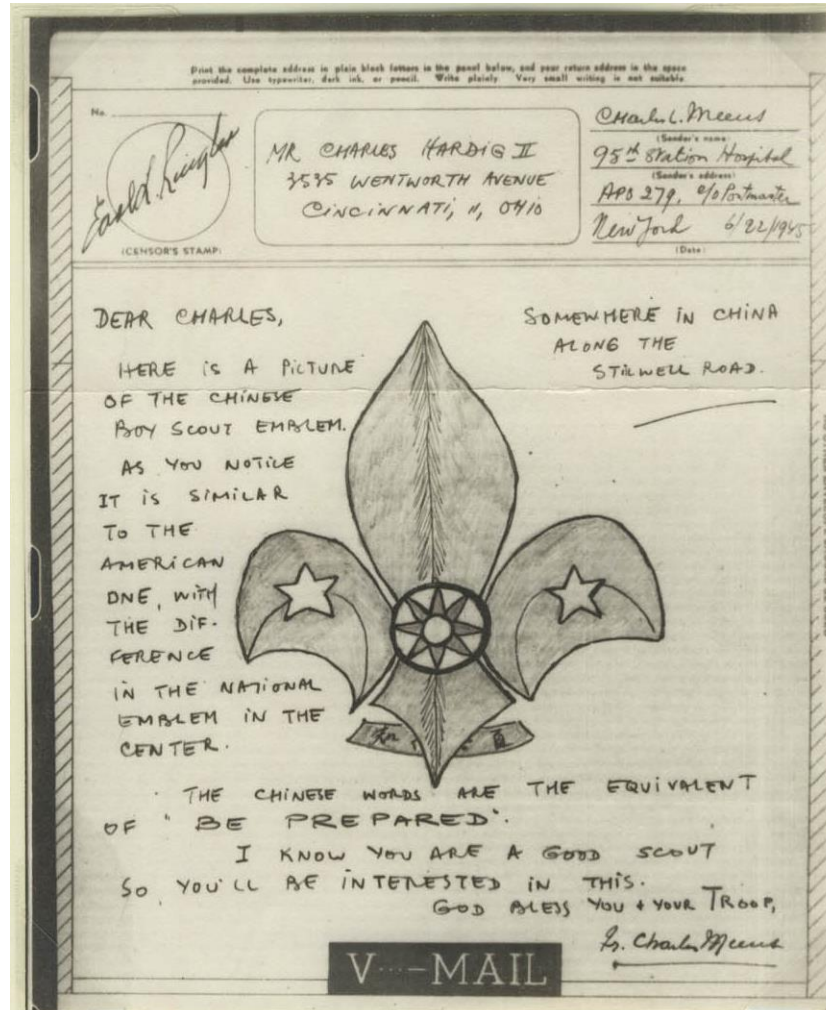 Print the complete address in plain block letters in the panel below, and your return address in the space
provided. Use typewriter, dark ink, or pencil. Write plainly. Very small writing is not suitable
No.
(CENSOR'S STAMP)
MR CHARLES HARDIG II
3535 WENTWORTH AVENUE
CINCINNATI, 11, OHIO
Charles L. Meeus
(Sender's name)
95th Station Hospital
(Sender's address)
APO 279, c/o Postmaster
New York 6/22/1945
(Date)
DEAR CHARLES,
SOMEWHERE IN CHINA
ALONG THE
STILWELL ROAD.
HERE IS A PICTURE
OF THE CHINESE
BOY SCOUT EMBLEM.
AS YOU NOTICE
IT IS SIMILAR
TO THE
AMERICAN
ONE, WITH
THE DIF-
FERENCE
IN THE NATIONAL
EMBLEM IN THE
CENTER.
THE CHINESE WORDS ARE THE EQUIVALENT
OF "BE PREPARED".
I KNOW YOU ARE A GOOD SCOUT
SO YOU'LL BE INTERESTED IN THIS.
GOD BLESS YOU + YOUR TROOP,
Fr. Charles Meeus
V···—MAIL